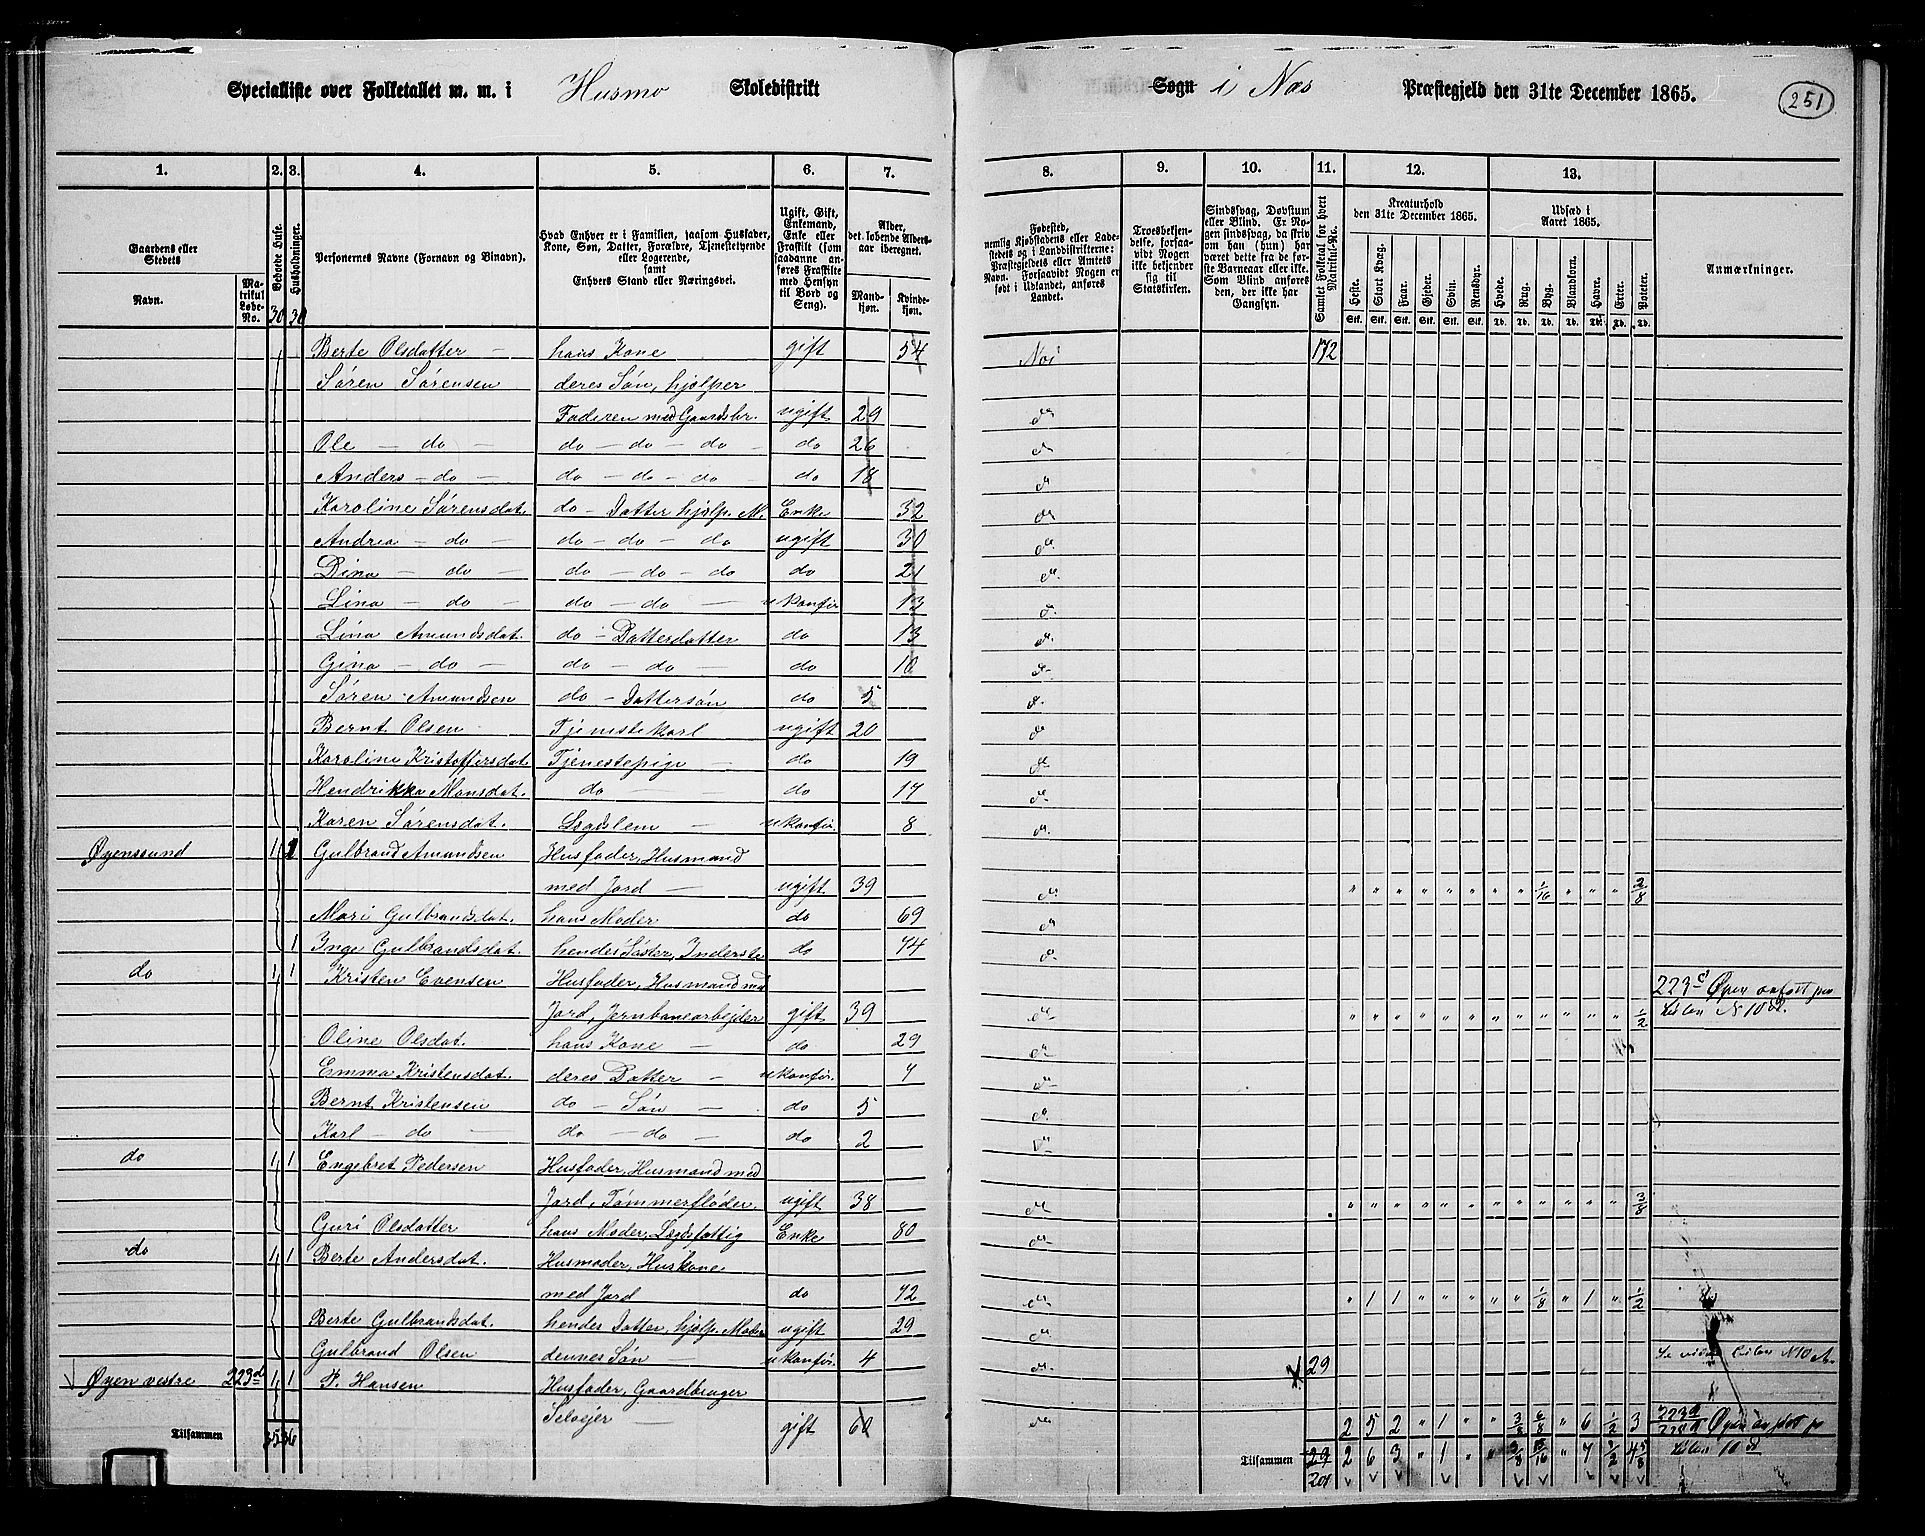 Specialliste over Folketallet m. m. i Husmo Skoledistrikt
Sogn i Næs Præstegjeld den 31te December 1865.
251
1. 2. 3. 4. 5. 6. 7.
8. 9. 10. 11. 12. 13.
Gaardens eller Stedets
Navn.
Matrikul Løbe-No.
Beboede Huse.
Husholdninger.
Personernes Navne (Fornavn og Binavn).
Hvad Enhver er i Familien, saasom Husfader, Kone, Søn, Datter, Forældre, Tjenestetyende eller Logerende, samt Enhvers Stand eller Næringsvei.
Ugift, Gift, Enkemand, Enke eller Fraskilt (som saadanne anføres Fraskilte med Hensyn til Bord og Seng).
Alder, det løbende Alders-aar iberegnet.
Mandkjøn.
Kvindekjøn.
Fødested, nemlig Kjøbstadens eller Ladestedets og i Landdistrikterne: Præstegjeldets eller Amtets Navn. Forsaavidt Nogen er født i Udlandet, anføres Landet.
Troesbekjendelse, forsaavidt Nogen ikke bekjender sig til Statskirken.
Sindssvag, Døvstum eller Blind. Er Nogen sindssvag, da skriv om han (hun) har været dette fra de første Barneaar eller ikke. Som Blind anføres den, der ikke har Gangsyn.
Samlet Folketal for hvert Matrikul-No.
Kreaturhold den 31te December 1865.
Heste. Stort Kvæg. Faar. Gjeder. Svin. Rensdyr.
Udsæd i Aaret 1865.
Hvede. Rug. Byg. Blandkorn. Havre. Erter. Poteter.
Anmærkninger.
30 30
Berte Olsdatter — hans Kone gift 54 Næs 172
Søren Sørensen deres Søn, hjelper
Faderen med Gaardsbr. ugift 29 do
Ole — do — do — do — do do 26 do
Anders — do — do — do — do do 18 do
Karoline Sørensdat. do — Datter hjelp. M. Enke 32 do
Andrea — do — do — do — do ugift 30 do
Dina — do — do — do — do do 21 do
Lina — do — do — do — ukonfir 13 do
Lina Amundsdat. do — Datterdatter do 13 do
Gina — do — do — do — do 10 do
Søren Amundsen do — Dattersøn do 5 do
Bernt Olsen Tjenestekarl ugift 20 do
Karoline Kristoffersdat. Tjenestepige — do 19 do
Hendrikka Monsdat. do — do 17 do
Karen Sørensdat. Lægdslem — ukonfir. 8 do
Øyenssund 1 1 Gulbrand Amundsen Husfader, Husmand
med Jord — ugift 39 do " " " " " " " " 1/16 " " " 2/8
Mari Gulbrandsdat. hans Moder do 69 do
1 Inge Gulbrandsdat. hendes Søster, Inderste do 74 do
do 1 1 Kristen Evensen Husfader, Husmand med
Jord, Jernbanearbejder gift 39 do " " " " " " " " " " " " 1/2
223 c) Øyen anført paa
Listen N 10 d.
Oline Olsdat. hans Kone — do 29 do
Emma Kristensdat. deres Datter — ukonfir. 7 do
Bernt Kristensen do — Søn — do 5 do
Karl — do — do — do — do 2 do
do 1 1 Engebret Pedersen Husfader, Husmand med
Jord, Tømmerfløder. ugift 38 do " " " " " " " " " " " " 3/8
Guri Olsdatter hans Moder, Lægdsfattig Enke 80 do
do 1 1 Berte Andersdat. Husmoder, Huskone
med Jord do 72 do " 1 1 " " " " " 1/8 " 1 " 1/2
Berte Gulbrandsdat. hendes Datter, hjelp. Moder ugift 29 do
Gulbrand Olsen dennes Søn — ukonfir. 4 do 29
Øyen vestre 223 d 1 1 P. Hansen Husfader, Gaardbruger
Selvejer — gift 60 do 2 5 2 " 1 " " 3/8 6/8 " 6 1/2 3
Tilsammen 35 36
Tilsammen 29 2 6 3 " 1 " " 3/8 15/16 " 7 1/2 4 5/8
201